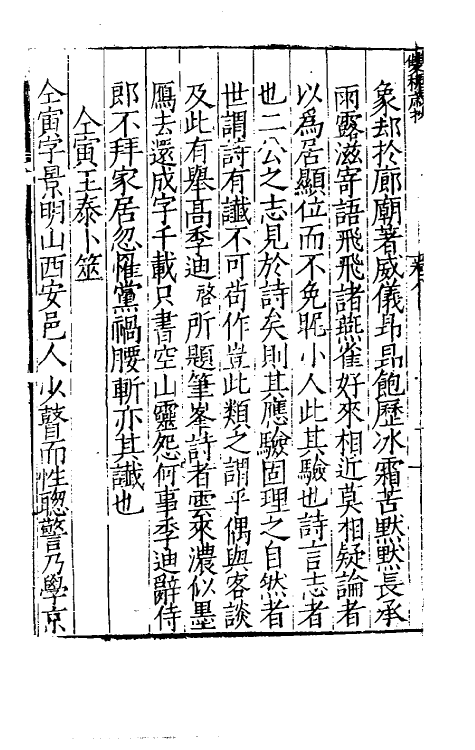 象却於廊廟著威儀昂昂飽歷冰霜苦默默長承
雨露滋寄語飛飛諸燕雀好來相近莫相疑論者
以爲居顯位而不免昵小人此其驗也詩言志者
也二公之志見於詩矣則其應驗固理之自然者
世謂詩有讖不可茍作豈此類之謂乎偶與客談
及此有舉髙季迪啓所題筆峯詩者雲來濃似墨
鴈去還成字千載只書空山靈怨何事季迪辭侍
郎不拜家居忽罹黨禍腰斬亦其讖也
仝寅王泰卜筮
仝寅字景明山西安邑人少瞽而性聰警乃學京